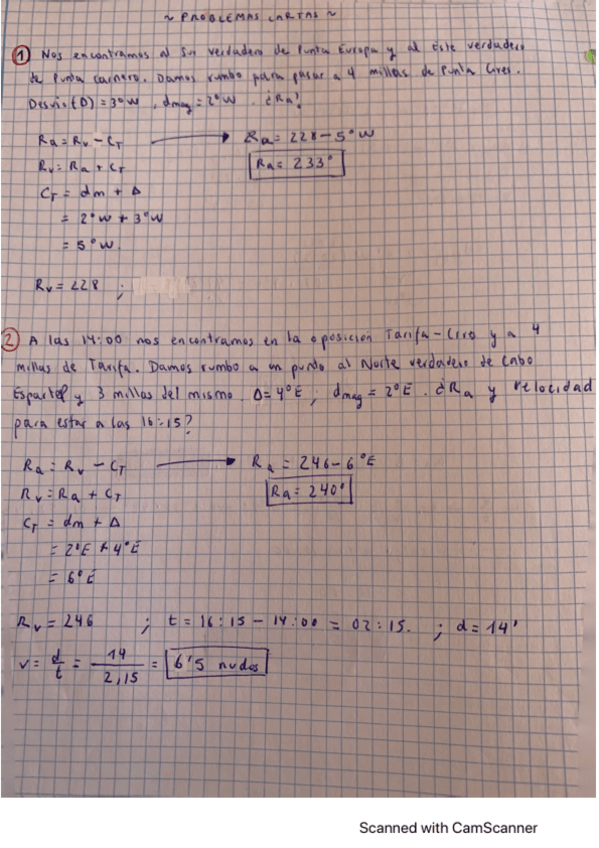 ~ PROBLEMAS CARTAS ~
① Nos encontramos al Sur verdadero de Punta Europa y al Este verdadero
de Punta Carnero. Damos rumbo para pasar a 4 millas de Punta Cires.
Desvío (D) = 3°W, dmag = 2°W. ¿Ra?
Ra = Rv - CT → Ra = 228 - 5°W
Rv = Ra + CT Ra = 233°
CT = dm + Δ
= 2°W + 3°W
= 5°W.
Rv = 228 ;
② A las 14:00 nos encontramos en la oposición Tarifa - Cires y a 4
millas de Tarifa. Damos rumbo a un punto al Norte verdadero de Cabo
Espartel y 3 millas del mismo. Δ = 4°E ; dmag = 2°E. ¿Ra y velocidad
para estar a las 16:15?
Ra = Rv - CT → Ra = 246 - 6°E
Rv = Ra + CT Ra = 240°
CT = dm + Δ
= 2°E + 4°E
= 6°E
Rv = 246 ; t = 16:15 - 14:00 = 02:15. ; d = 14'
v = d/t = 14/2,15 = 6'5 nudos
Scanned with CamScanner